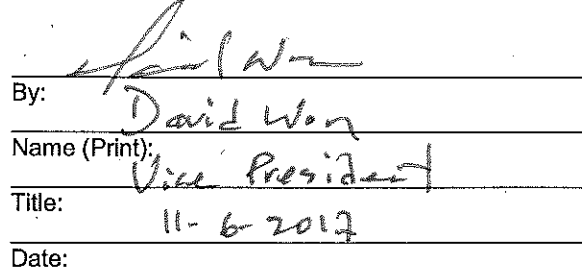 By:
David Won
Name (Print):
Vice President
Title:
11-6-2017
Date: